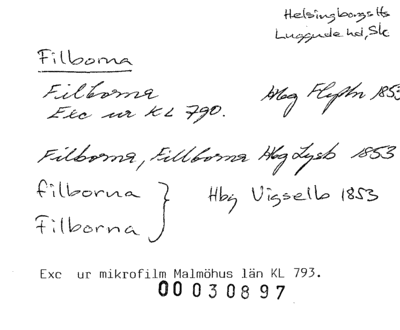 Helsingborgs lfs
Luggude hd, Sk
Filborna
Filborna Hbg Flyttn 1853
Exc ur KL 790.
Filborna, Fillborna Hbg Lysb 1853
filborna
Hbg Vigselb 1853
Filborna
Exc ur mikrofilm Malmöhus län KL 793.
00030897